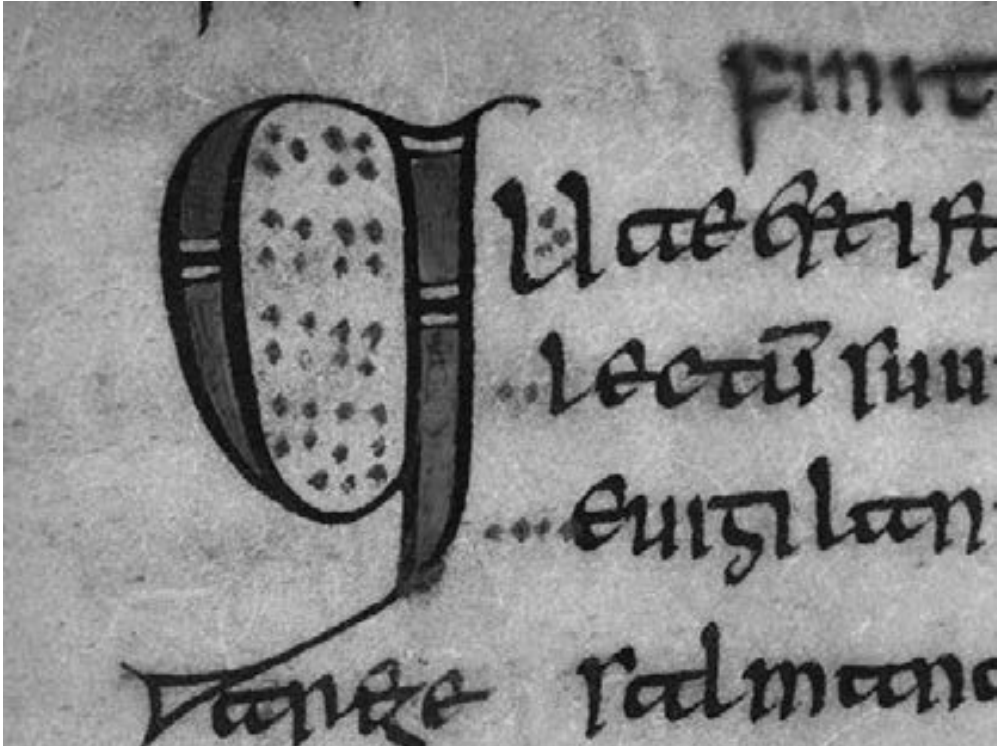 finit
QUae est ist
lectū suu
euigilan
salmana